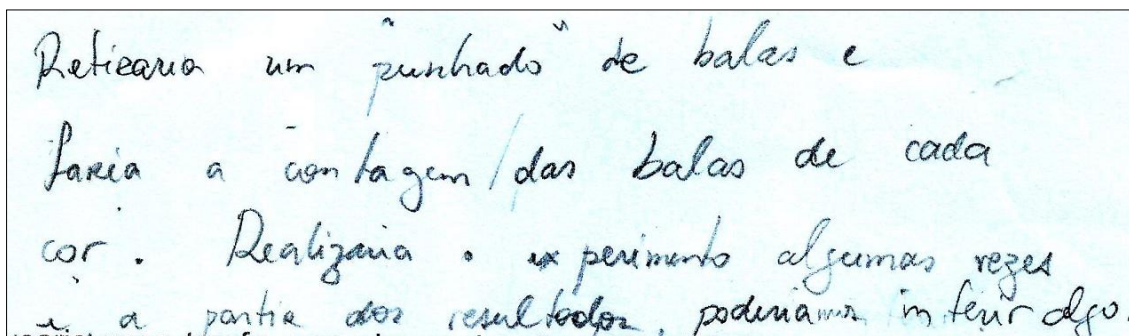 Retiraria um "punhado" de balas e
faria a contagem das balas de cada
cor. Realizaria o experimento algumas vezes
e a partir dos resultados, poderíamos inferir algo.